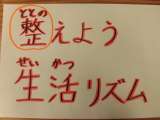 ととの
整えよう
せい かつ
生活リズム